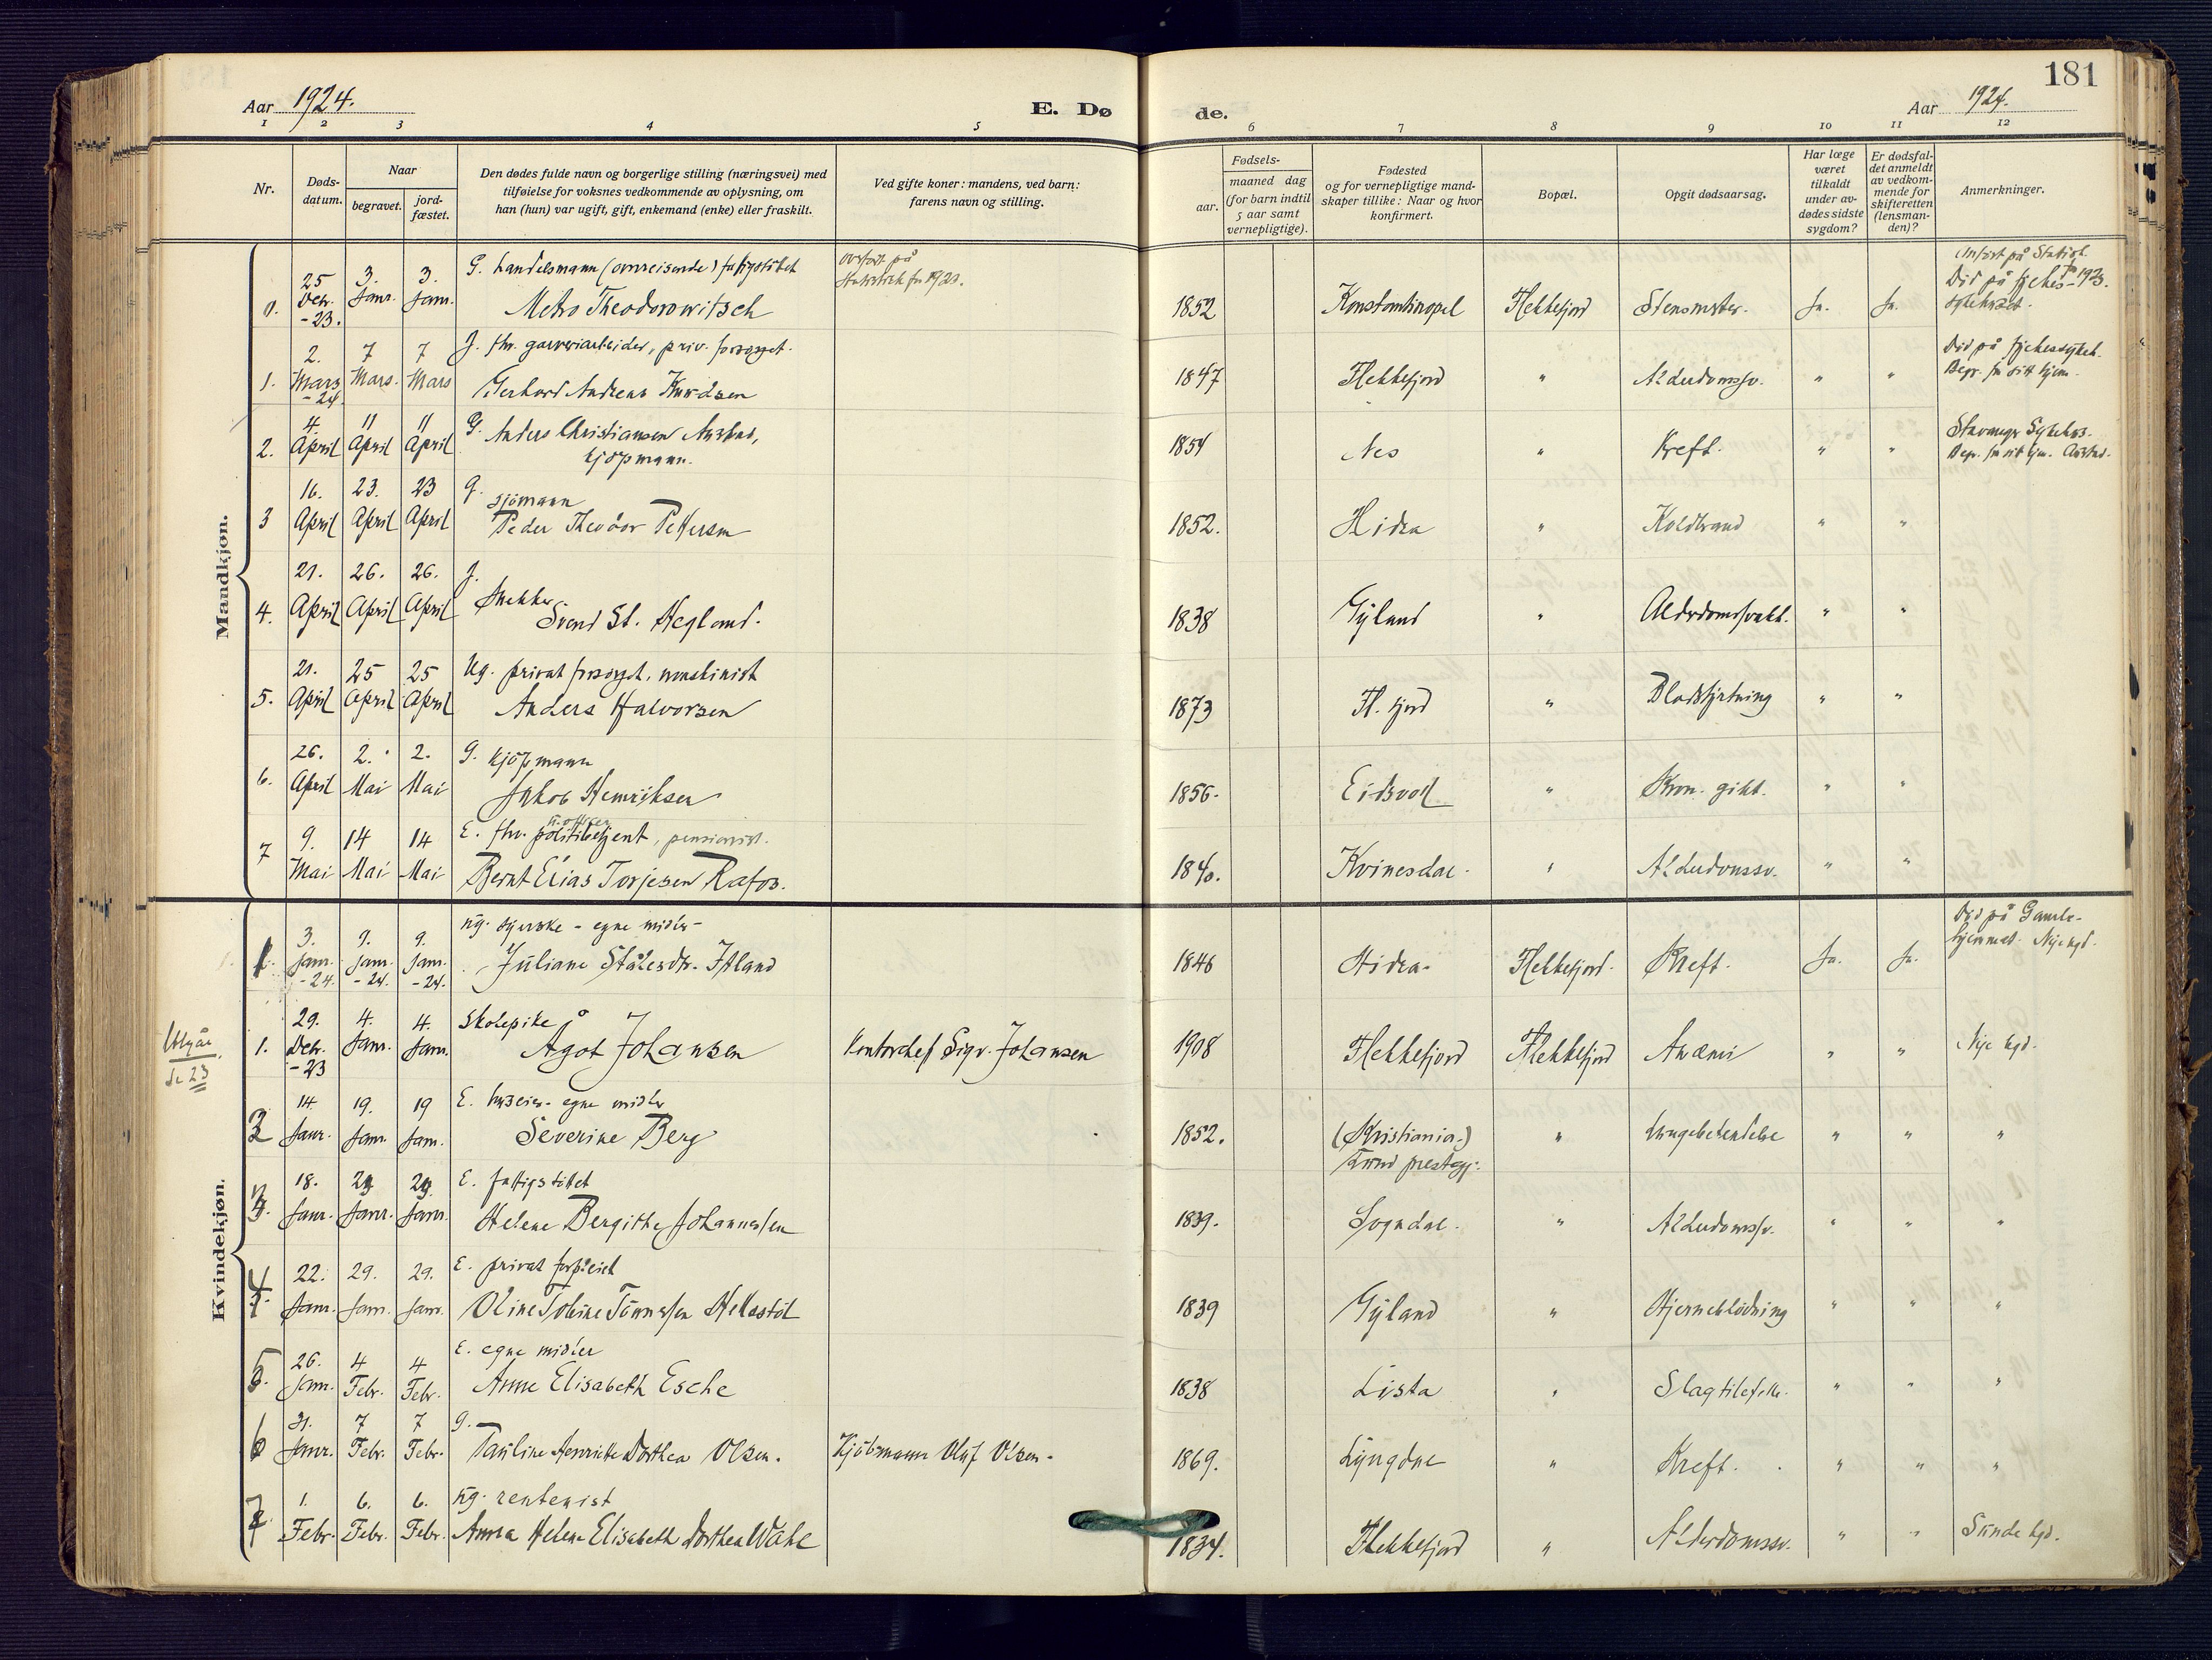 181
Aar 1924.
E. Dø
de.
Aar 1924.
1 2 3 4 5 6 7 8 9 10 11 12
Nr.
Døds-
datum.
Naar
begravet.
jord-
fæstet.
Den dødes fulde navn og borgerlige stilling (næringsvei) med
tilføielse for voksnes vedkommende av oplysning, om
han (hun) var ugift, gift, enkemand (enke) eller fraskilt.
Ved gifte koner: mandens, ved barn:
farens navn og stilling.
Fødsels-
aar.
maaned dag
(for barn indtil
5 aar samt
vernepligtige).
Fødested
og for vernepligtige mand-
skaper tillike: Naar og hvor
konfirmert.
Bopæl.
Opgit dødsaarsag.
Har læge
været
tilkaldt
under av-
dødes sidste
sygdom?
Er dødsfal-
det anmeldt
av vedkom-
mende for
skifteretten
(lensman-
den)?
Anmerkninger.
Mandkjøn.
0. 25 Debr. -23. 3. Janr. 3. Janr. G. handelsmann (omreisende)
Metro Theodorowitsch 1852 Konstantinopel Flekkefjord Ja. Ja.
1. 2. Mars -24. 7 Mars. 7 Mars J. fhv. garveriarbeider, priv. forsørget.
Gerhard Andreas Knudsen 1847 Flekkefjord " Alderdomssv. " "
2. 4. April 11 April 11 April G. Anders Christiansen
kjöpmann. 1854 Nes " Kreft. " "
3 16. April 23. April 23 April G. sjömann
Peder Theodor Pettersen 1852. Hidra " Koldbrand " "
4. 21. April 26. April 26. April J.
Svend St. Hegland. 1838 Gyland " Alderdomssvakh. " "
5. 21. April 25 April 25 April Ug. privat forsörget, maskinist
Anders Halvorsen 1873 Fl. fjord " " "
6. 26. April 2. Mai 2. Mai G. kjöpmann
Jakob Henriksen 1856. Eidsvoll " Kron. gikt. " "
7 9. Mai 14 Mai 14 Mai E. fhv. politibetjent, pensionist.
Bernt Elias Torjesen Rafos. 1840. Kvinesdal. " Alderdomssv. " "
Kvindekjøn.
1. 3. Jan. -24. 9. Jan. -24. 9. Jan. -24. ug. syerske - egne midler -
Juliane Stålesdtr. Itland 1846 Hidra. Flekkefjord. Kreft. Ja. Ja. Död på Gamle-
hjemmet. Nye kgd.
1. 29. Debr. -23 4. Janr. 4. Janr. skolepike
Ågot Johansen Kontorchef Sigv. Johansen 1908 Flekkefjord Flekkefjord Anæmi " " Nye kgd.
2 14. Janr. 19. Janr. 19 Janr. E. huseier - egne midler
Severine Berg 1852. (Kristiania.)
Lund prestegj. " Lungebetendelse " " "
3. 18. Janr. Janr. Janr. E. fattigstöttet
Helene Bergithe Johannessen 1839. Sogndal. " Alderdomssv. " " "
4 22. Janr. 29. Janr. 29. Janr. E. privat forpleiet
Oline Tobine Tönnessen Hellestöl 1839 Gyland " Hjerneblödning " " "
5. 26. Janr. 4 Febr. 4 Febr. E. egne midler
Anne Elisabeth Esche 1838 Lista " Slagtilfelle. " " "
6 31. Janr. 7 Febr. 7 Febr. G.
Pauline Henriette Dorthea Olsen. Kjöbmann Oluf Olsen. 1869. Lyngdal " Kreft. " " "
7 1. Febr. 6. Febr. 6. Febr. ug. rentenist
Anna Helene Elisabeth Dorthea Wahl 1834. Flekkefjord " Alderdomssv. " " Sunde kgd.
Utgår
23